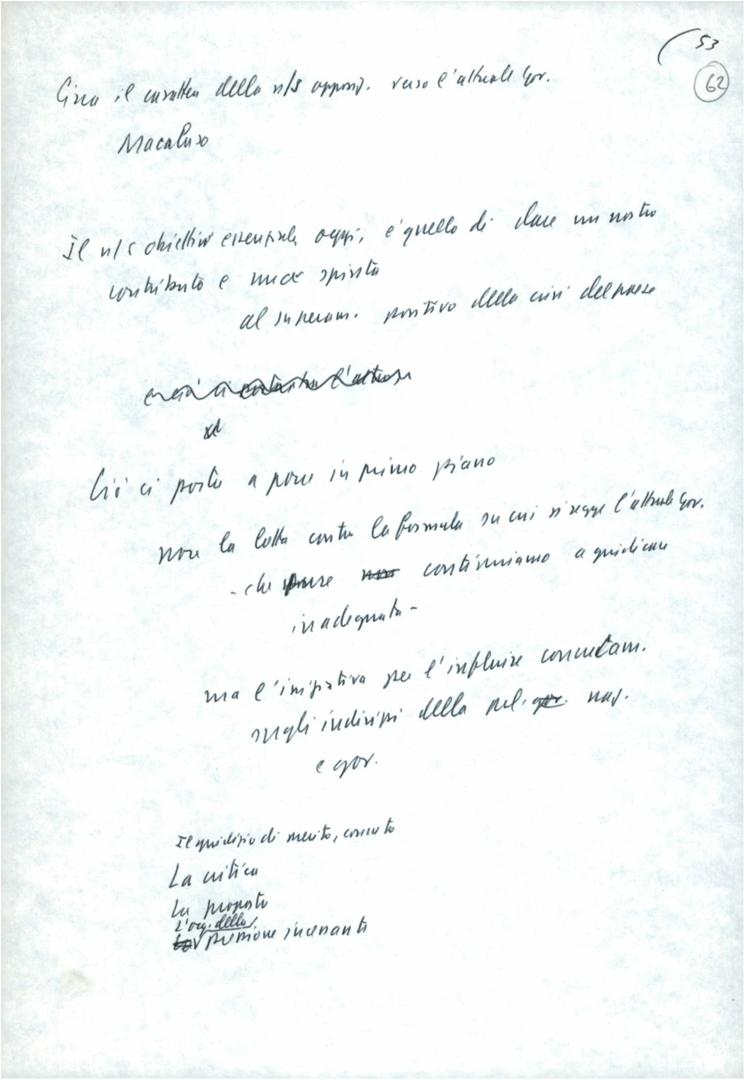 53
62
Circa il carattere della n/s opposiz. verso l'attuale Gov.
Macaluso
Il n/s obiettivo essenziale oggi, è quello di dare un nostro
contributo e una spinta
al superam. positivo della crisi del paese
Ciò ci porta a porre in primo piano
non la lotta contro la formula su cui si regge l'attuale Gov.
- che pure non continuiamo a giudicare
inadeguata -
ma l'iniziativa per l'influire concretam.
sugli indirizzi della pol. gov. naz.
e gov.
Il giudizio di merito, concreto
La critica
La proposta
L'org. della
la pressione incessante